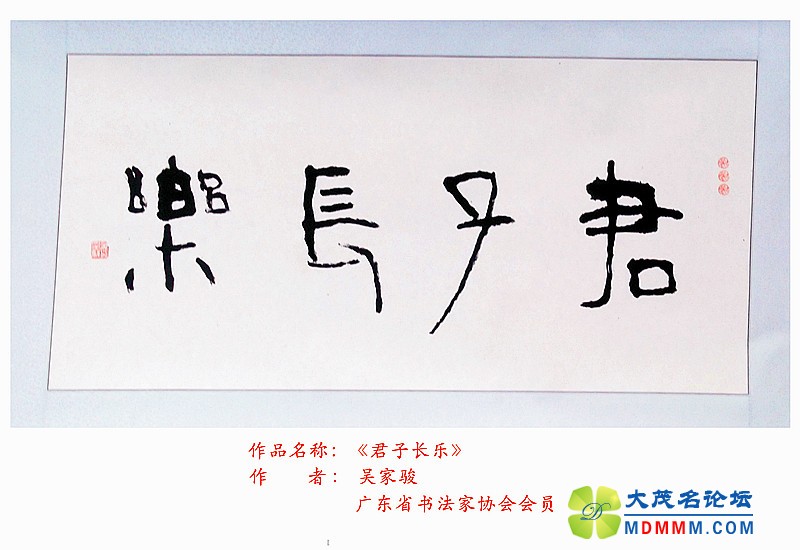 君子長樂
作品名称：《君子长乐》
作　　者：吴家骏
广东省书法家协会会员
大茂名论坛
MDMMM.COM